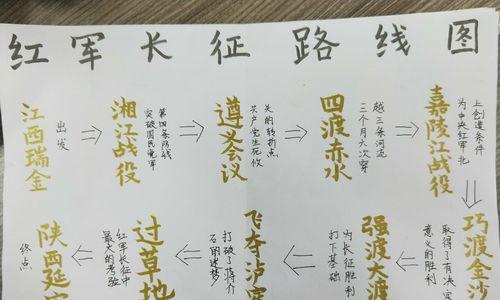 红军长征路线图
江西瑞金
出发
湘江战役
突破国民党军
第四条防线
遵义会议
共产党生死攸
关的转折点
四渡赤水
三个月六次穿
越三条河流
嘉陵江战役
为中央红军北
上创造条件
巧渡金沙
取得了有决定
意义的胜利
强渡大渡
为长征胜利
打下基础
飞夺泸定
打破了蒋介
石的迷梦
过草地
红军长征中
最大的考验
陕西延安
终点